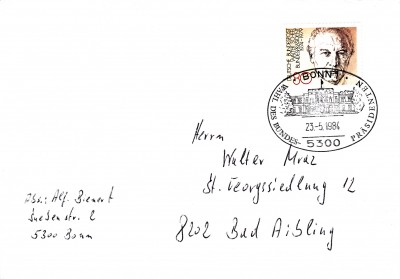 BONN 1
WAHL DES BUNDES-
PRÄSIDENTEN
23.-5.1984
5300
Herrn
Walter Mraz
St. Georgssiedlung 12
8202 Bad Aibling
Abs.: Alf. Bienert
5300 Bonn